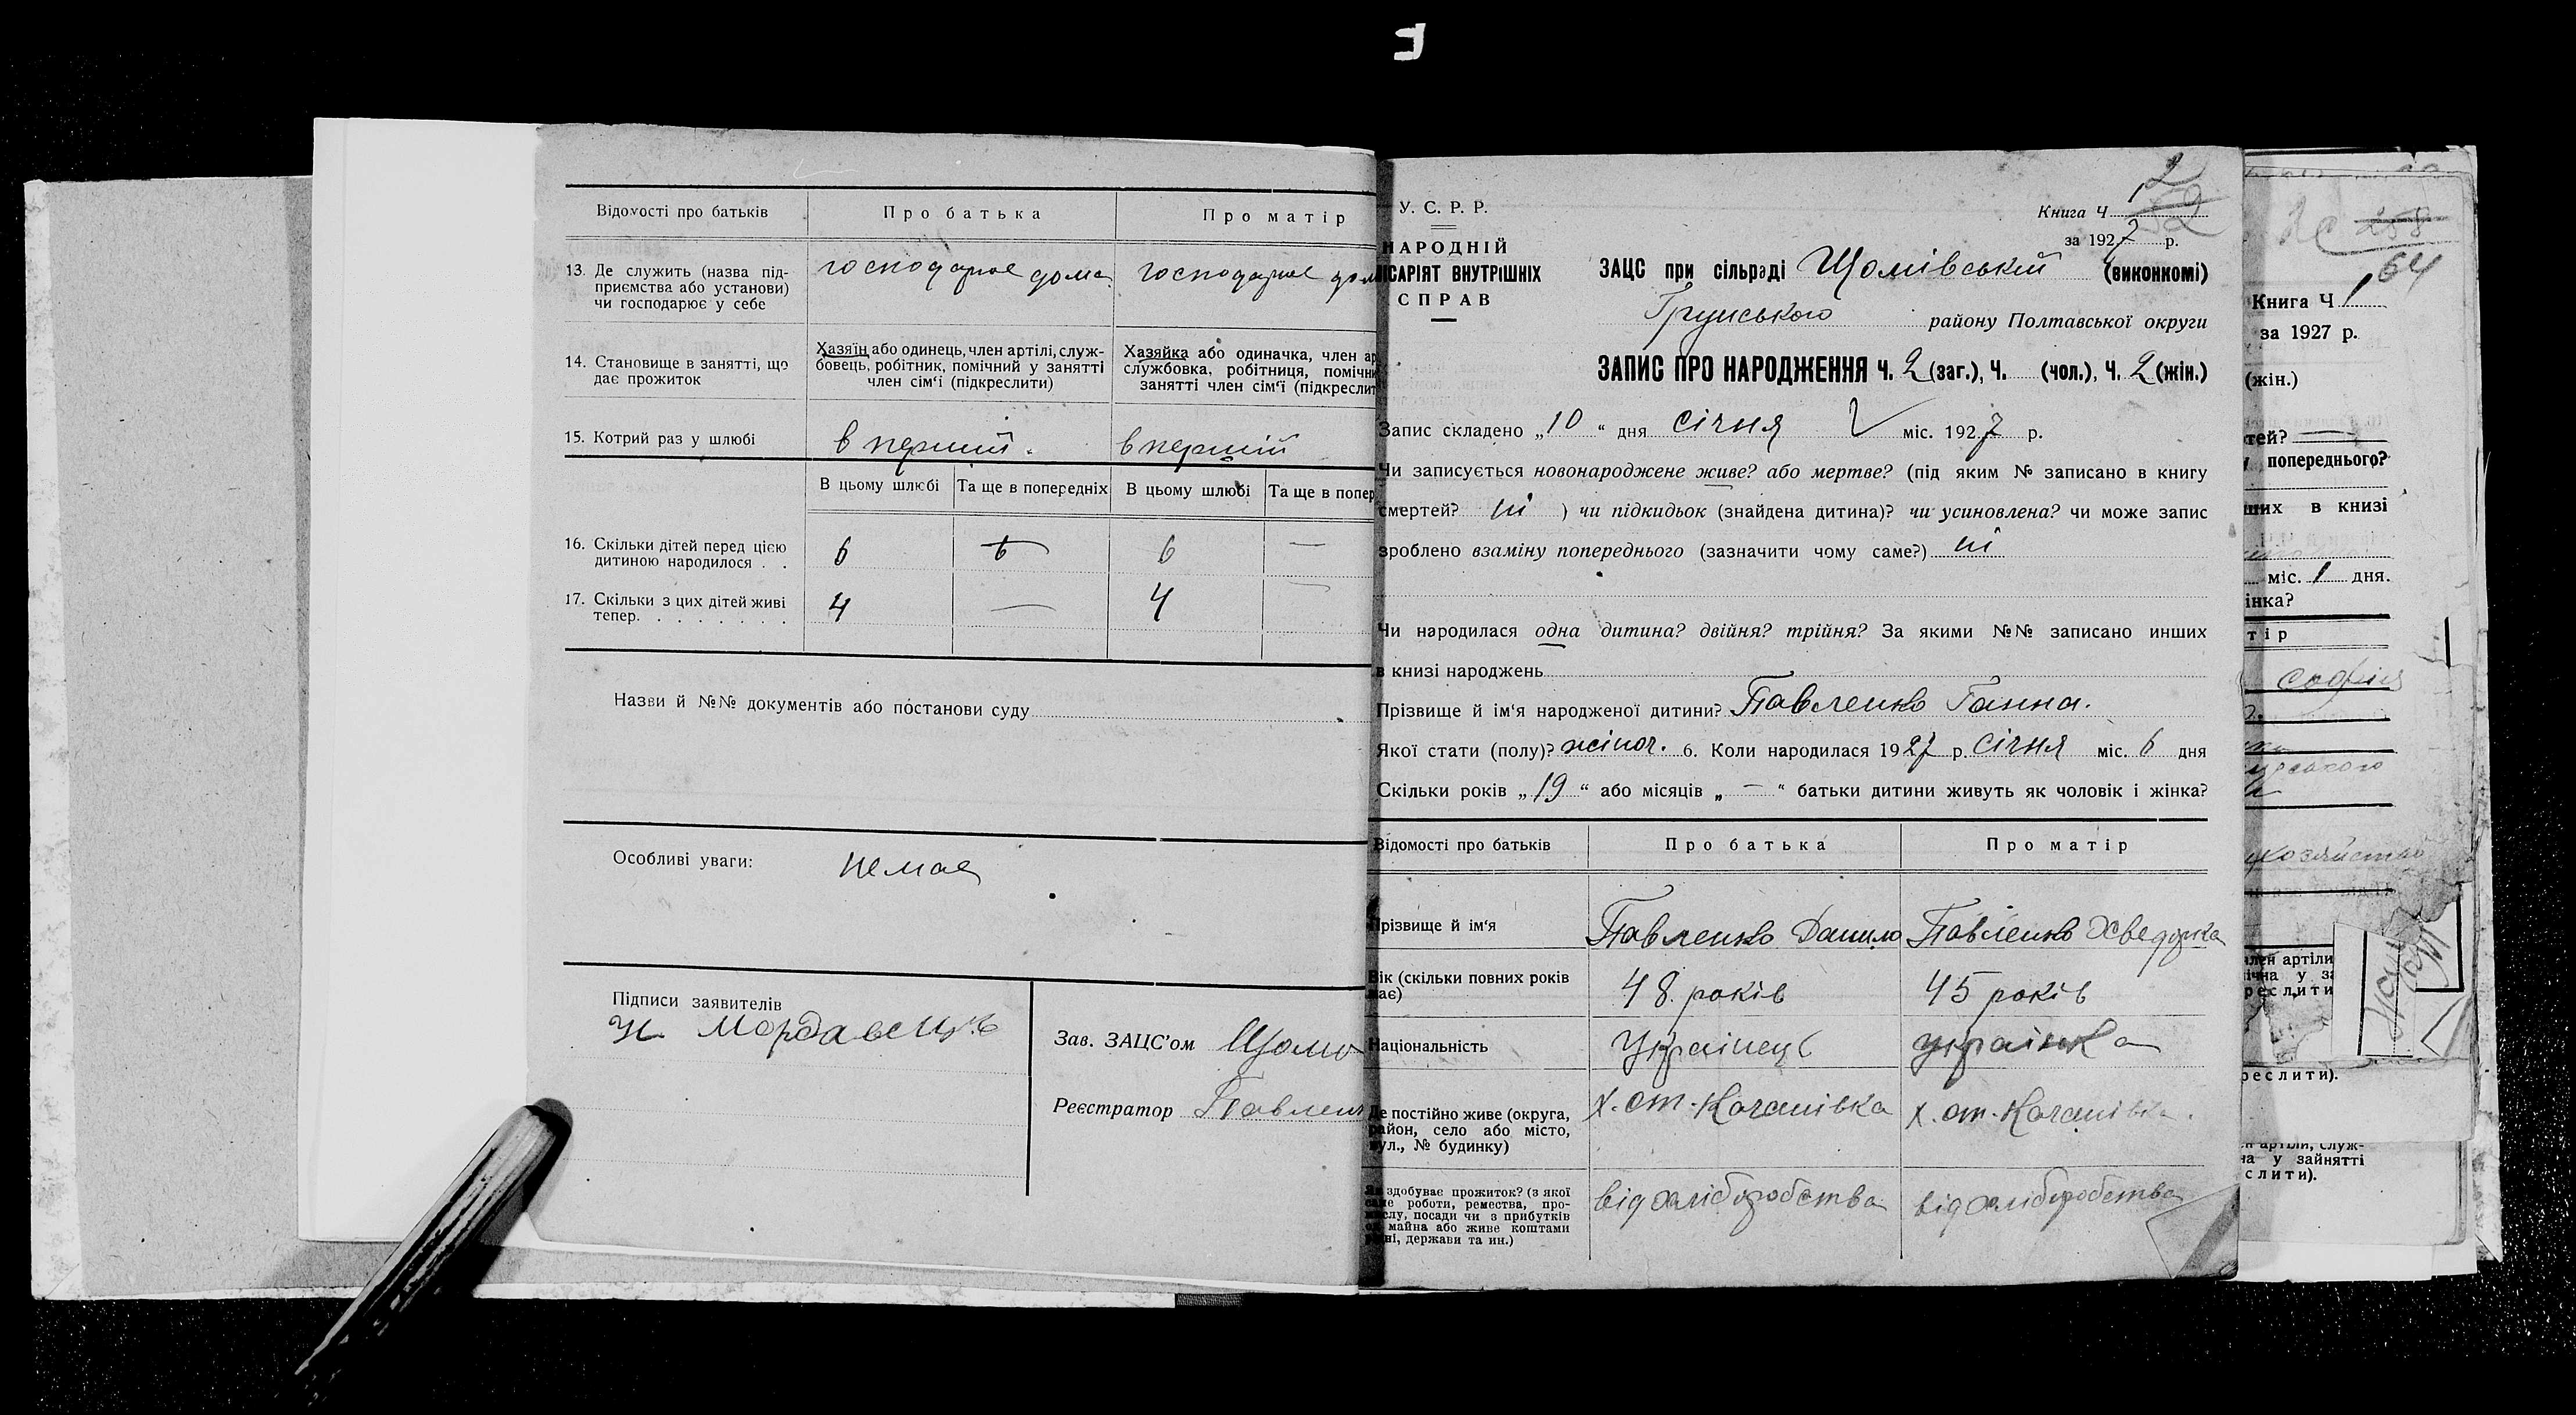 Відомості про батьків Про батька Про матір
13. Де служить (назва під-
приємства або установи)
чи господарює у себе
господарює дома господарює
14. Становище в занятті, що
дає прожиток
Хазяїн або одинець, член артілі, служ-
бовець, робітник, помічний у занятті
член сім'ї (підкреслити)
Хазяйка або одиначка, член
службовка, робітниця,
занятті член сім'ї
15. Котрий раз у шлюбі в перший. в перший
В цьому шлюбі Та ще в попередніх В цьому шлюбі Та ще в
16. Скільки дітей перед цією
дитиною народилося . . 6 6 —
17. Скільки з цих дітей живі
тепер. . . . . . . . 4 — 4
Назви й №№ документів або постанови суду
Особливі уваги: немає
Підписи заявителів
Зав. ЗАЦС'ом
Реєстратор
У. С. Р. Р.
НАРОДНІЙ
ВНУТРІШНІХ
СПРАВ
Книга Ч.
за 1927 р.
ЗАЦС при сільраді (виконкомі)
Грунського району Полтавської округи
ЗАПИС ПРО НАРОДЖЕННЯ Ч. 2 (заг.), Ч. (чол.), Ч. 2 (жін.)
Запис складено „10“ дня січня міс. 1927 р.
Чи записується новонароджене живе? або мертве? (під яким № записано в книгу
смертей? ні ) чи підкидьок (знайдена дитина)? чи усиновлена? чи може запис
зроблено взаміну попереднього (зазначити чому саме?) ні
Чи народилася одна дитина? двійня? трійня? За якими №№ записано инших
в книзі народжень
Прізвище й ім'я народженої дитини? Павленко Ганна.
Якої стати (полу)? жіноч. 6. Коли народилася 1927 р. січня міс. 6 дня
Скільки років „19“ або місяців „—“ батьки дитини живуть як чоловік і жінка?
Відомості про батьків Про батька Про матір
Прізвище й ім'я Павленко Данило Павленко
Вік (скільки повних років
має) 48 років 45 років
Національність Українець українка
Де постійно живе (округа,
район, село або місто,
вул., № будинку)
х. от. Качанівка х. от. Качанівка.
здобуває прожиток? (з якої
роботи, ремества, про-
мислу, посади чи з прибутків
майна або живе коштами
держави та ин.)
від хліборобства від хліборобства
258
64
Книга Ч 1
за 1927 р.
(жін.)
попереднього?
в книзі
міс. 1 дня.
софія
член артіли
у зайнятті